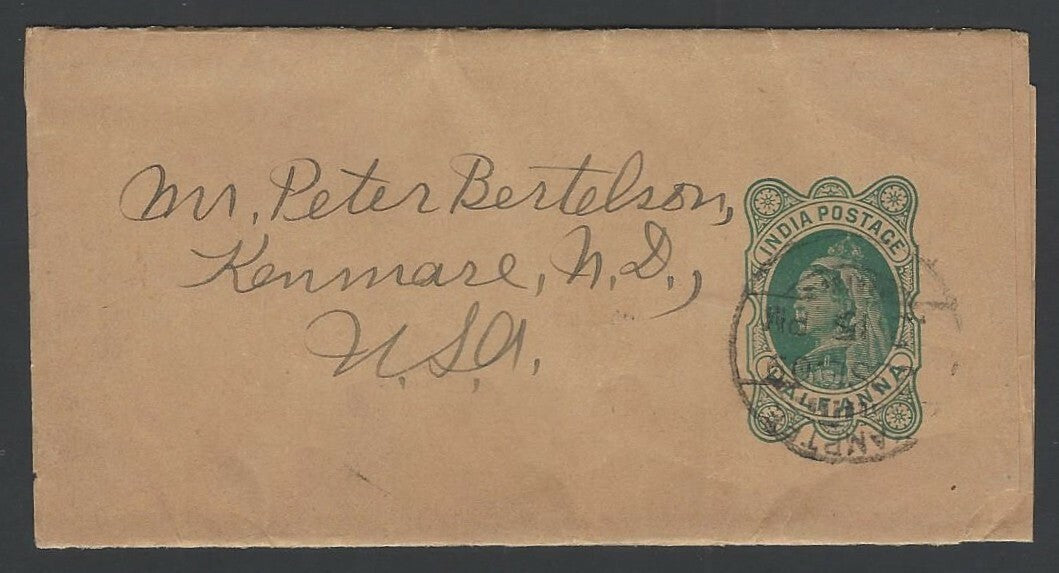 Mr. Peter Bertelson,
Kenmare, N.D.,
U.S.A.
INDIA POSTAGE
HALF ANNA